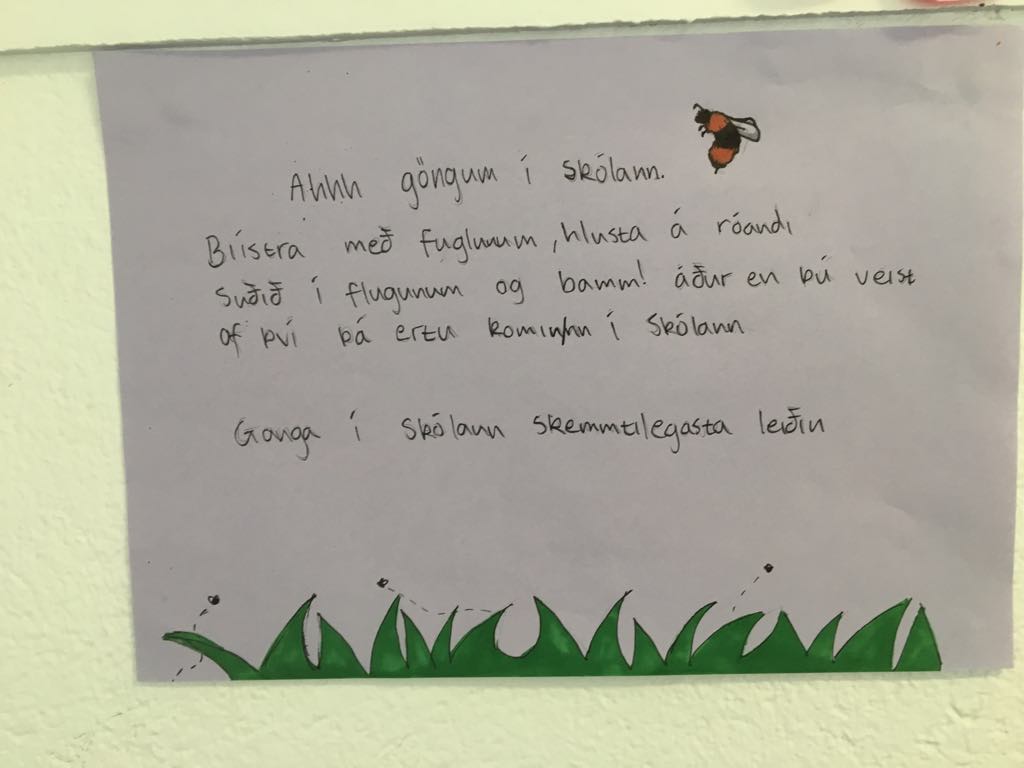 Ahhh göngum í skólann.
Blístra með fuglunum, hlusta á róandi
suðið í flugunum og bamm! áður en þú veist
af því þá ertu komin/nn í skólann
Ganga í skólann skemmtilegasta leiðin